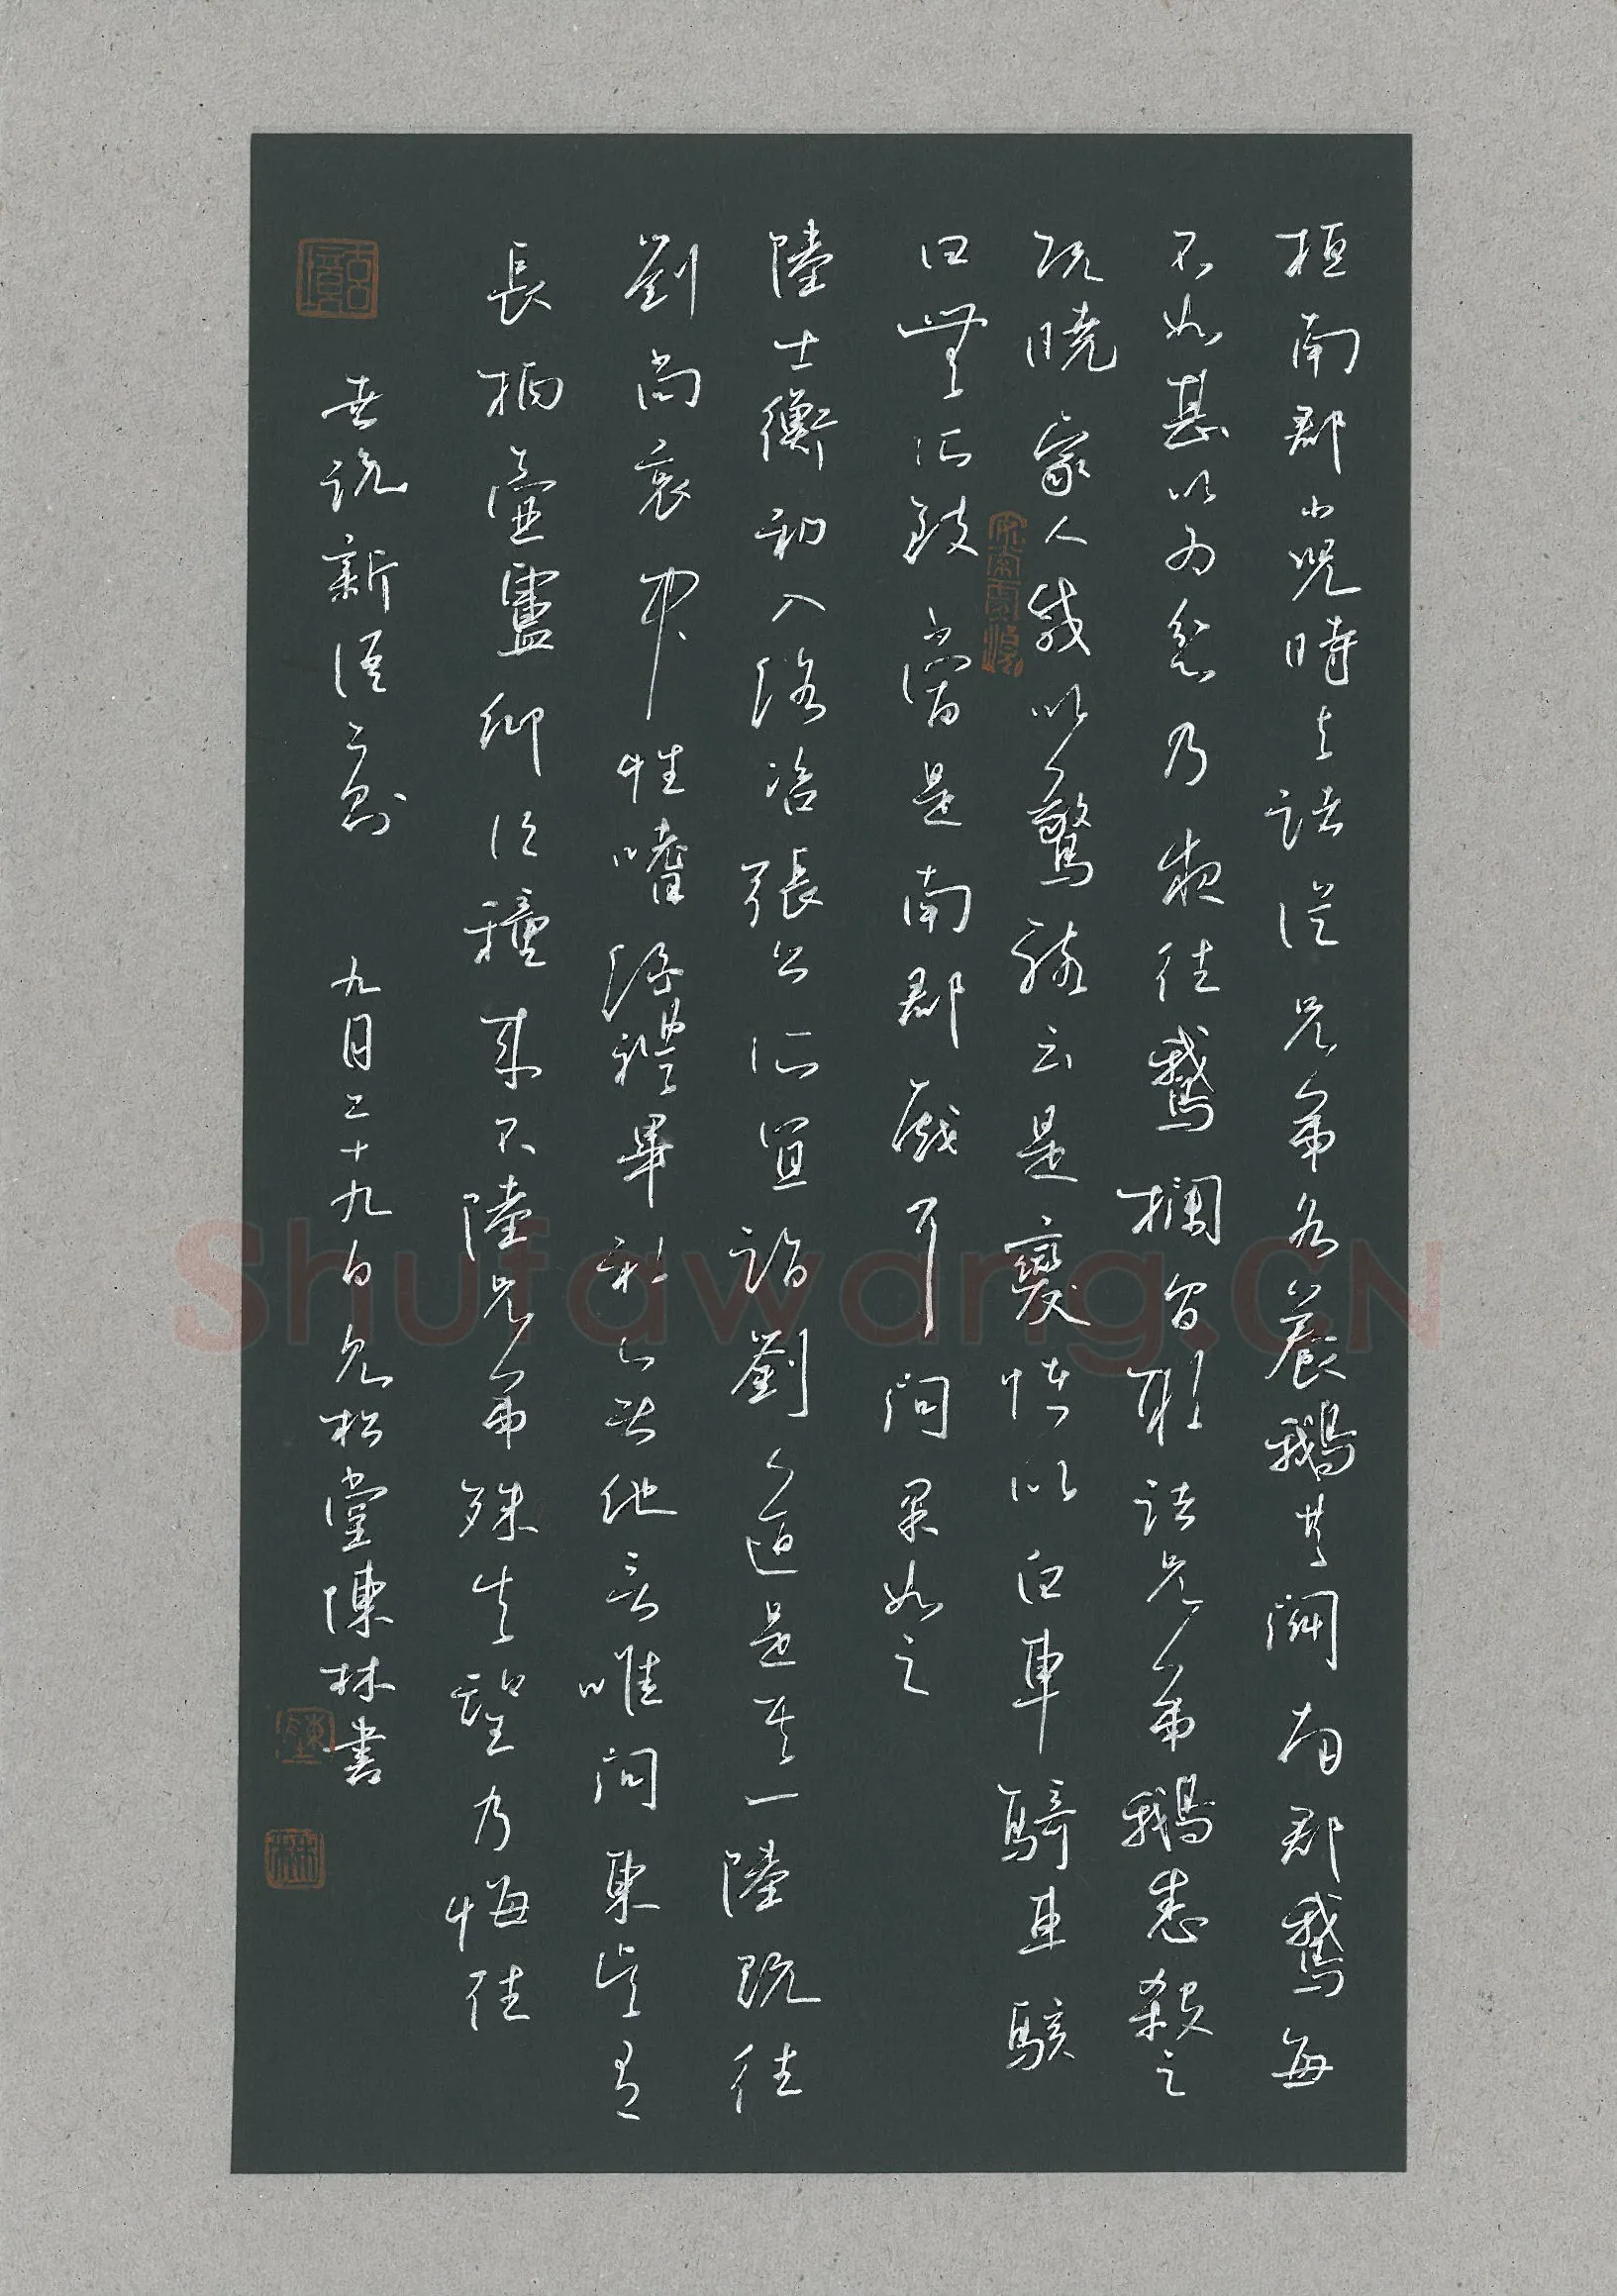 桓南郡小兒時与諸從兄弟各養鵝共鬭南郡鵝每
不如甚以为忿乃夜往鵝欄間取諸兄弟鵝悉殺之
既曉家人咸以驚駭云是變怪以白車騎車騎
曰無所致當是南郡戲耳問果如之
陸士衡初入洛咨張公所宜詣劉道是其一陸既往
劉尚哀中性嗜酒禮畢初无他言唯問東吳有
長柄壺盧卿得種來不陸兄弟殊失望乃悔往
世說新語二則 九月二十九日見松堂陳林書
Shufawang.CN